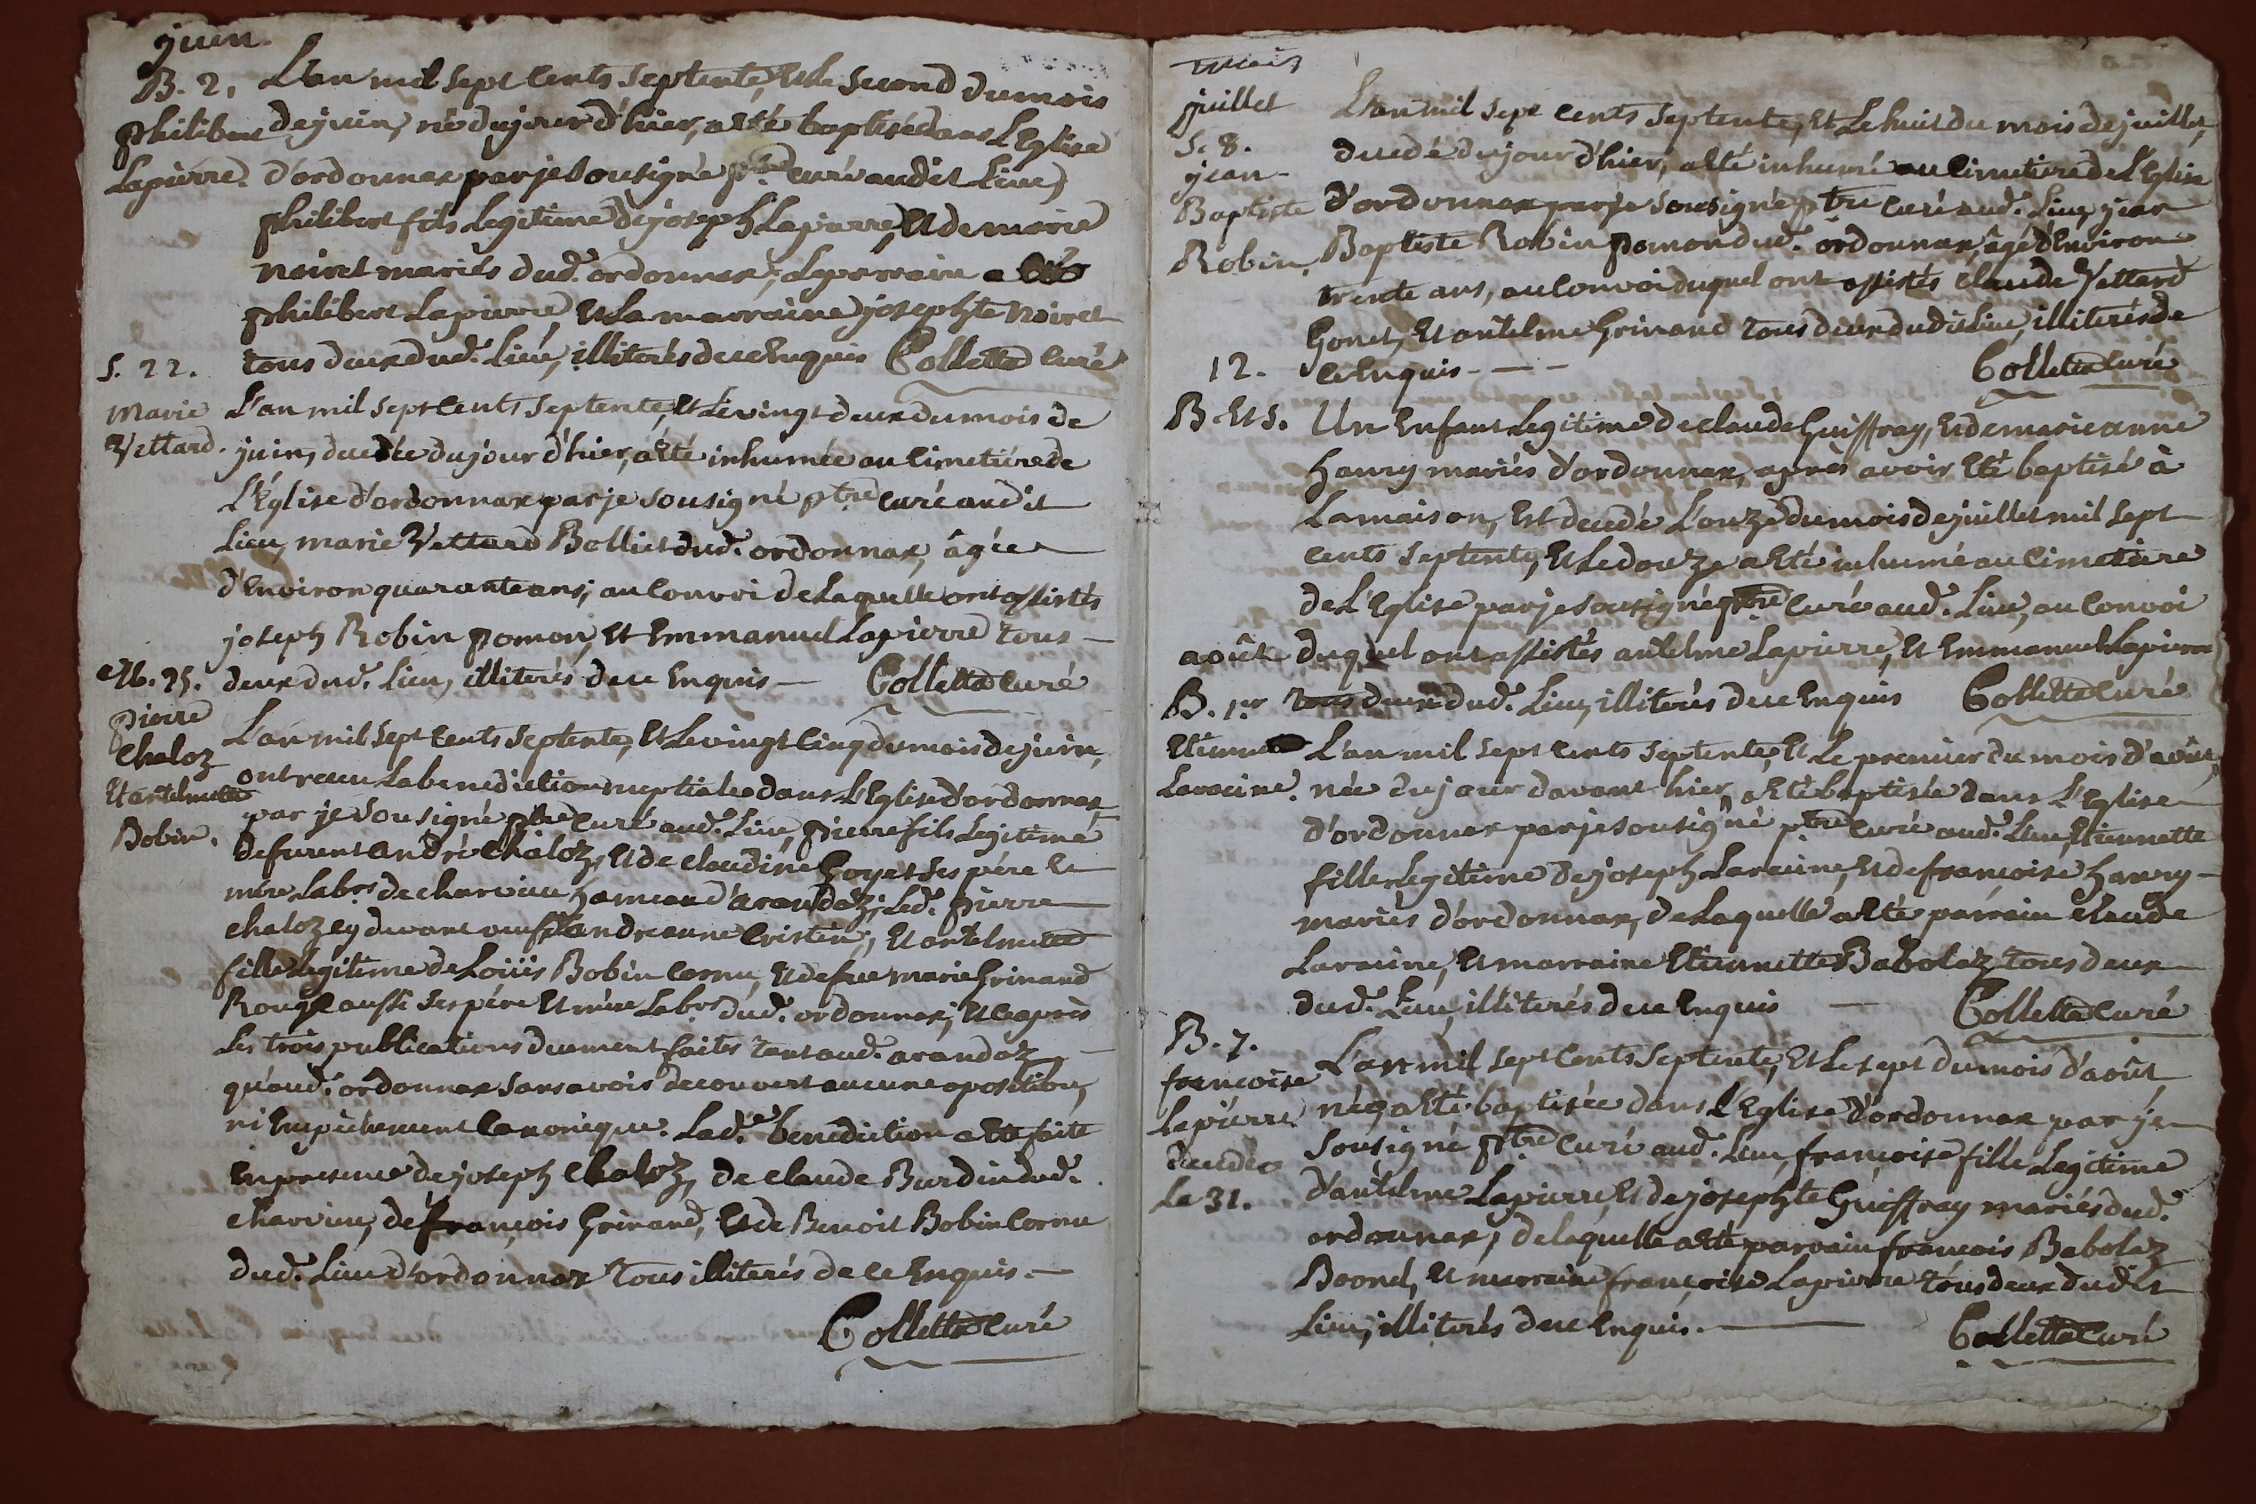 juin.
B. 2. L'an mil sept Cents septente, Et Le second du mois
philibert de juin, né du jour d'hier, a Eté baptisé dans L'Eglise
Lapierre. d'ordonnax par je sousigné ptre Curé audit Lieu,
philibert fils Legitime de joseph Lapierre, Et de marie
noiret mariés dud. ordonnax, Le parrain a Eté
philibert Lapierre Et La marraine josephte noiret
tous deux dud. Lieu, illiterés de ce Enquis Collette Curé
S. 22.
marie L'an mil sept Cents septente, Et Le vingt deux du mois de
Vettard. juin, decedée du jour d'hier, a Eté inhumée au Cimetiére de
L'Eglise d'ordonnax par je sousigné ptre Curé audit
Lieu, marie Vettard Bolliet dud. ordonnax, âgée
d'Environ quarante ans, au Convoi de Laquelle ont assistés
joseph Robin pomon, Et Emmanuel Lapierre tous
deux dud. Lieu, illiterés de ce Enquis — Collette Curé
M. 25.
pierre L'an mil sept Cents septente, Et Le vingt Cinq du mois de juin,
Chaloz ont recu La benediction nuptiale dans L'Eglise d'ordonnax
Et antelmette par je sousigné ptre Curé aud. Lieu, pierre fils Legitime
Bobin. de furent andré Chaloz, Et de Claudine Goyet ses pére Et
mére Labrs de charvieu hameau d'arandaz; Led. pierre
Chaloz cy devant veuf d'andreanne Cristin; Et antelmette
fille Legitime de Loüis Bobin Cornu, Et de fue marie Grinand
Rouge aussi ses pére Et mére Labrs dud. ordonnax; Et ce aprés
Les trois publications duement faites tant aud. arandaz
qu'aud. ordonnax sans avoir decouvert aucune oposition,
ni Empêchement Canonique. Lad.e benediction a Eté faite
En presence de joseph Chaloz, de Claude Burdin dud.
Charvieu, de françois Grinand, Et de Benoit Bobin Cornu
dud. Lieu d'ordonnax tous illiterés de ce Enquis. —
Collette Curé
juillet L'an mil sept Cents septente, Et Le huit du mois de juillet,
S. 8. decedé du jour d'hier, a Eté inhumé au Cimetiere de L'Eglise
jean Baptiste d'ordonnax par je sousigné ptre Curé aud. Lieu, jean
Robin. Baptiste Robin pomon dud. ordonnax, âgé d'Environ
trente ans, au Convoi duquel ont assistés Claude Vettard
Gonet, Et antelme Grinand tous deux dudit Lieu, illiterés de
ce Enquis - - - Collette Curé
12.
B. Et S. Un Enfant Legitime de Claude Guiffray, Et de marie anne
hanry mariés d'ordonnax, aprés avoir Eté baptisé à
La maison, Est decedé L'onze du mois de juillet mil sept
cents septente, Et Le douze a Eté inhumé au Cimetiere
de L'Eglise par je sousigné ptre Curé aud. Lieu, au Convoi
août duquel ont assistés antelme Lapierre, Et Emmanuel Lapierre
tous deux dud. Lieu, illiterés de ce Enquis Collette Curé
B. 1er
Etiennette L'an mil sept Cents septente, Et Le premier du mois d'août,
Laracine. née du jour d'avant hier, a Eté baptisée dans L'Eglise
d'ordonnax par je sousigné ptre Curé aud. Lieu, Etiennette
fille Legitime de joseph Laracine, Et de françoise hanry
mariés d'ordonnax, de Laquelle a Eté parrain Claude
Laracine, Et marraine Etiennette Babolaz tous deux
dud. Lieu, illiterés de ce Enquis — Collette Curé
B. 7. L'an mil sept Cents septente, Et Le sept du mois d'août,
francoise née, a Eté baptisée dans L'Eglise d'ordonnax par je
Lapierre sousigné ptre Curé aud. Lieu, françoise fille Legitime
decedée d'antelme Lapierre, Et de josephte Guiffray mariés dud.
Le 31. ordonnax, de laquelle a Eté parrain francois Babolaz
Et marraine françoise Lapierre tous deux dudit
Lieu, illiterés de ce Enquis. — Collette Curé